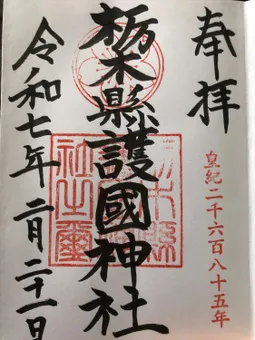 奉拝
皇紀二千六百八十五年
栃木縣護國神社
令和七年二月二十一日